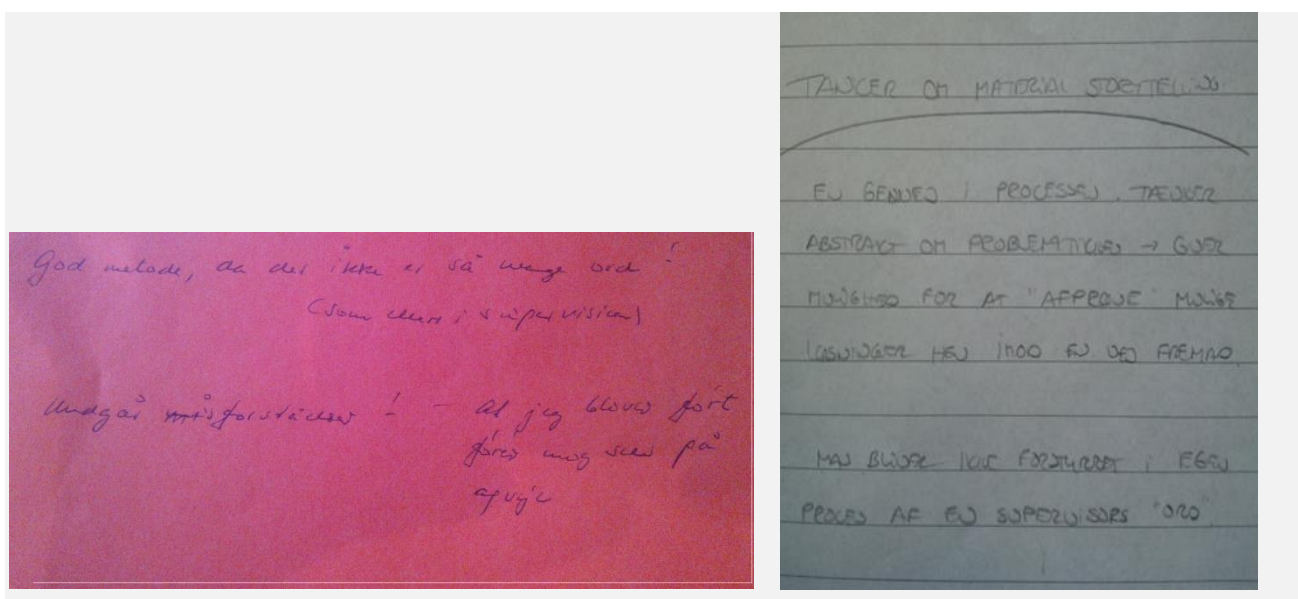 God metode, da der ikke er så mange ord !
(som ellers i supervision)
Undgår misforståelser ! - At jeg bliver ført
fører mig selv på
afveje
TANKER OM MATERIAL STORYTELLING
EN GENVEJ I PROCESSEN. TÆNKER
ABSTRAKT OM PROBLEMATIKKEN → GIVER
MULIGHED FOR AT "AFPRØVE" MULIGE
LØSNINGER HEN IMOD EN VEJ FREMAD
MAN BLIVER IKKE FORSTYRRET I EGEN
PROCES AF EN SUPERVISORS "ORD"